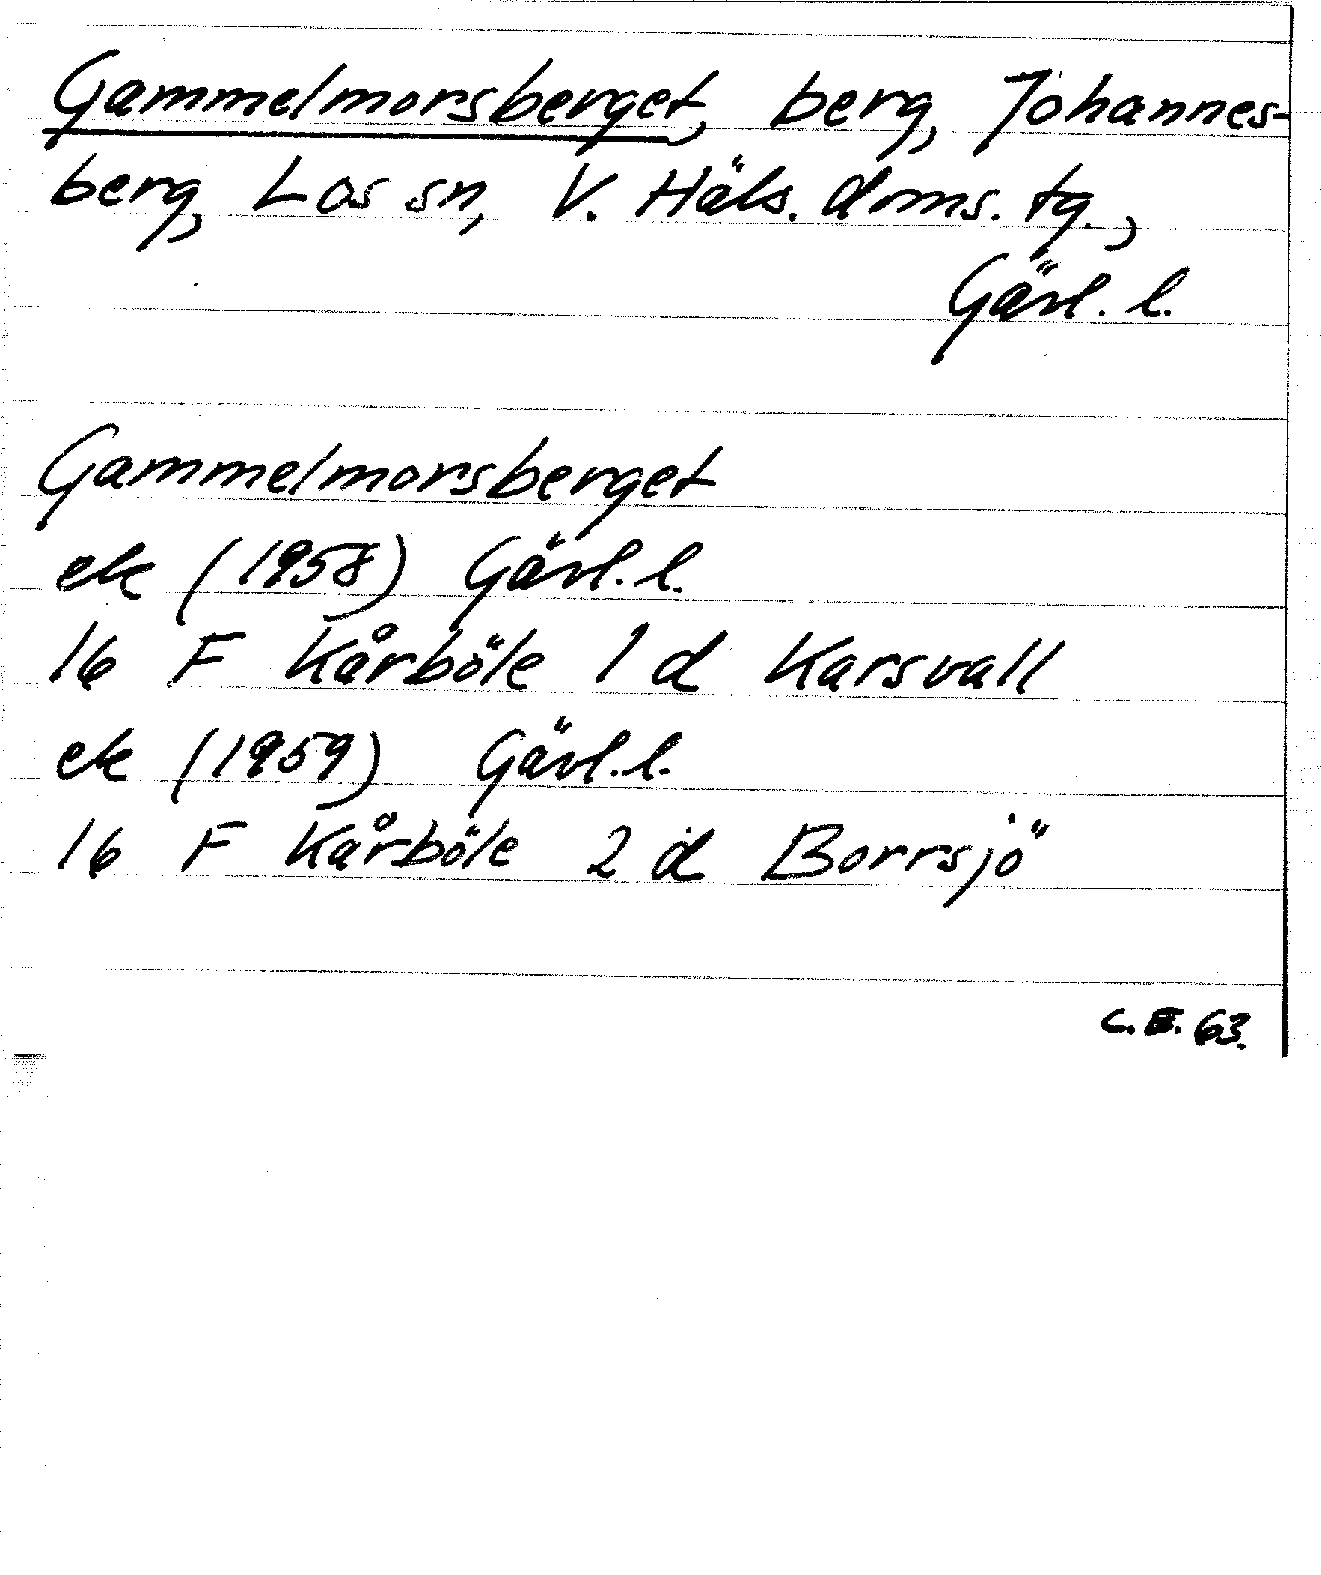 Gammelmorsberget, berg, Johannes-
berg, Los sn, V. Häls. doms. tg.,
Gävl. l.
Gammelmorsberget
ek (1958) Gävl. l.
16 F Kårböle 1 d Karsvall
ek (1959) Gävl. l.
16 F Kårböle 2 d Borrsjö
C.E. 63.